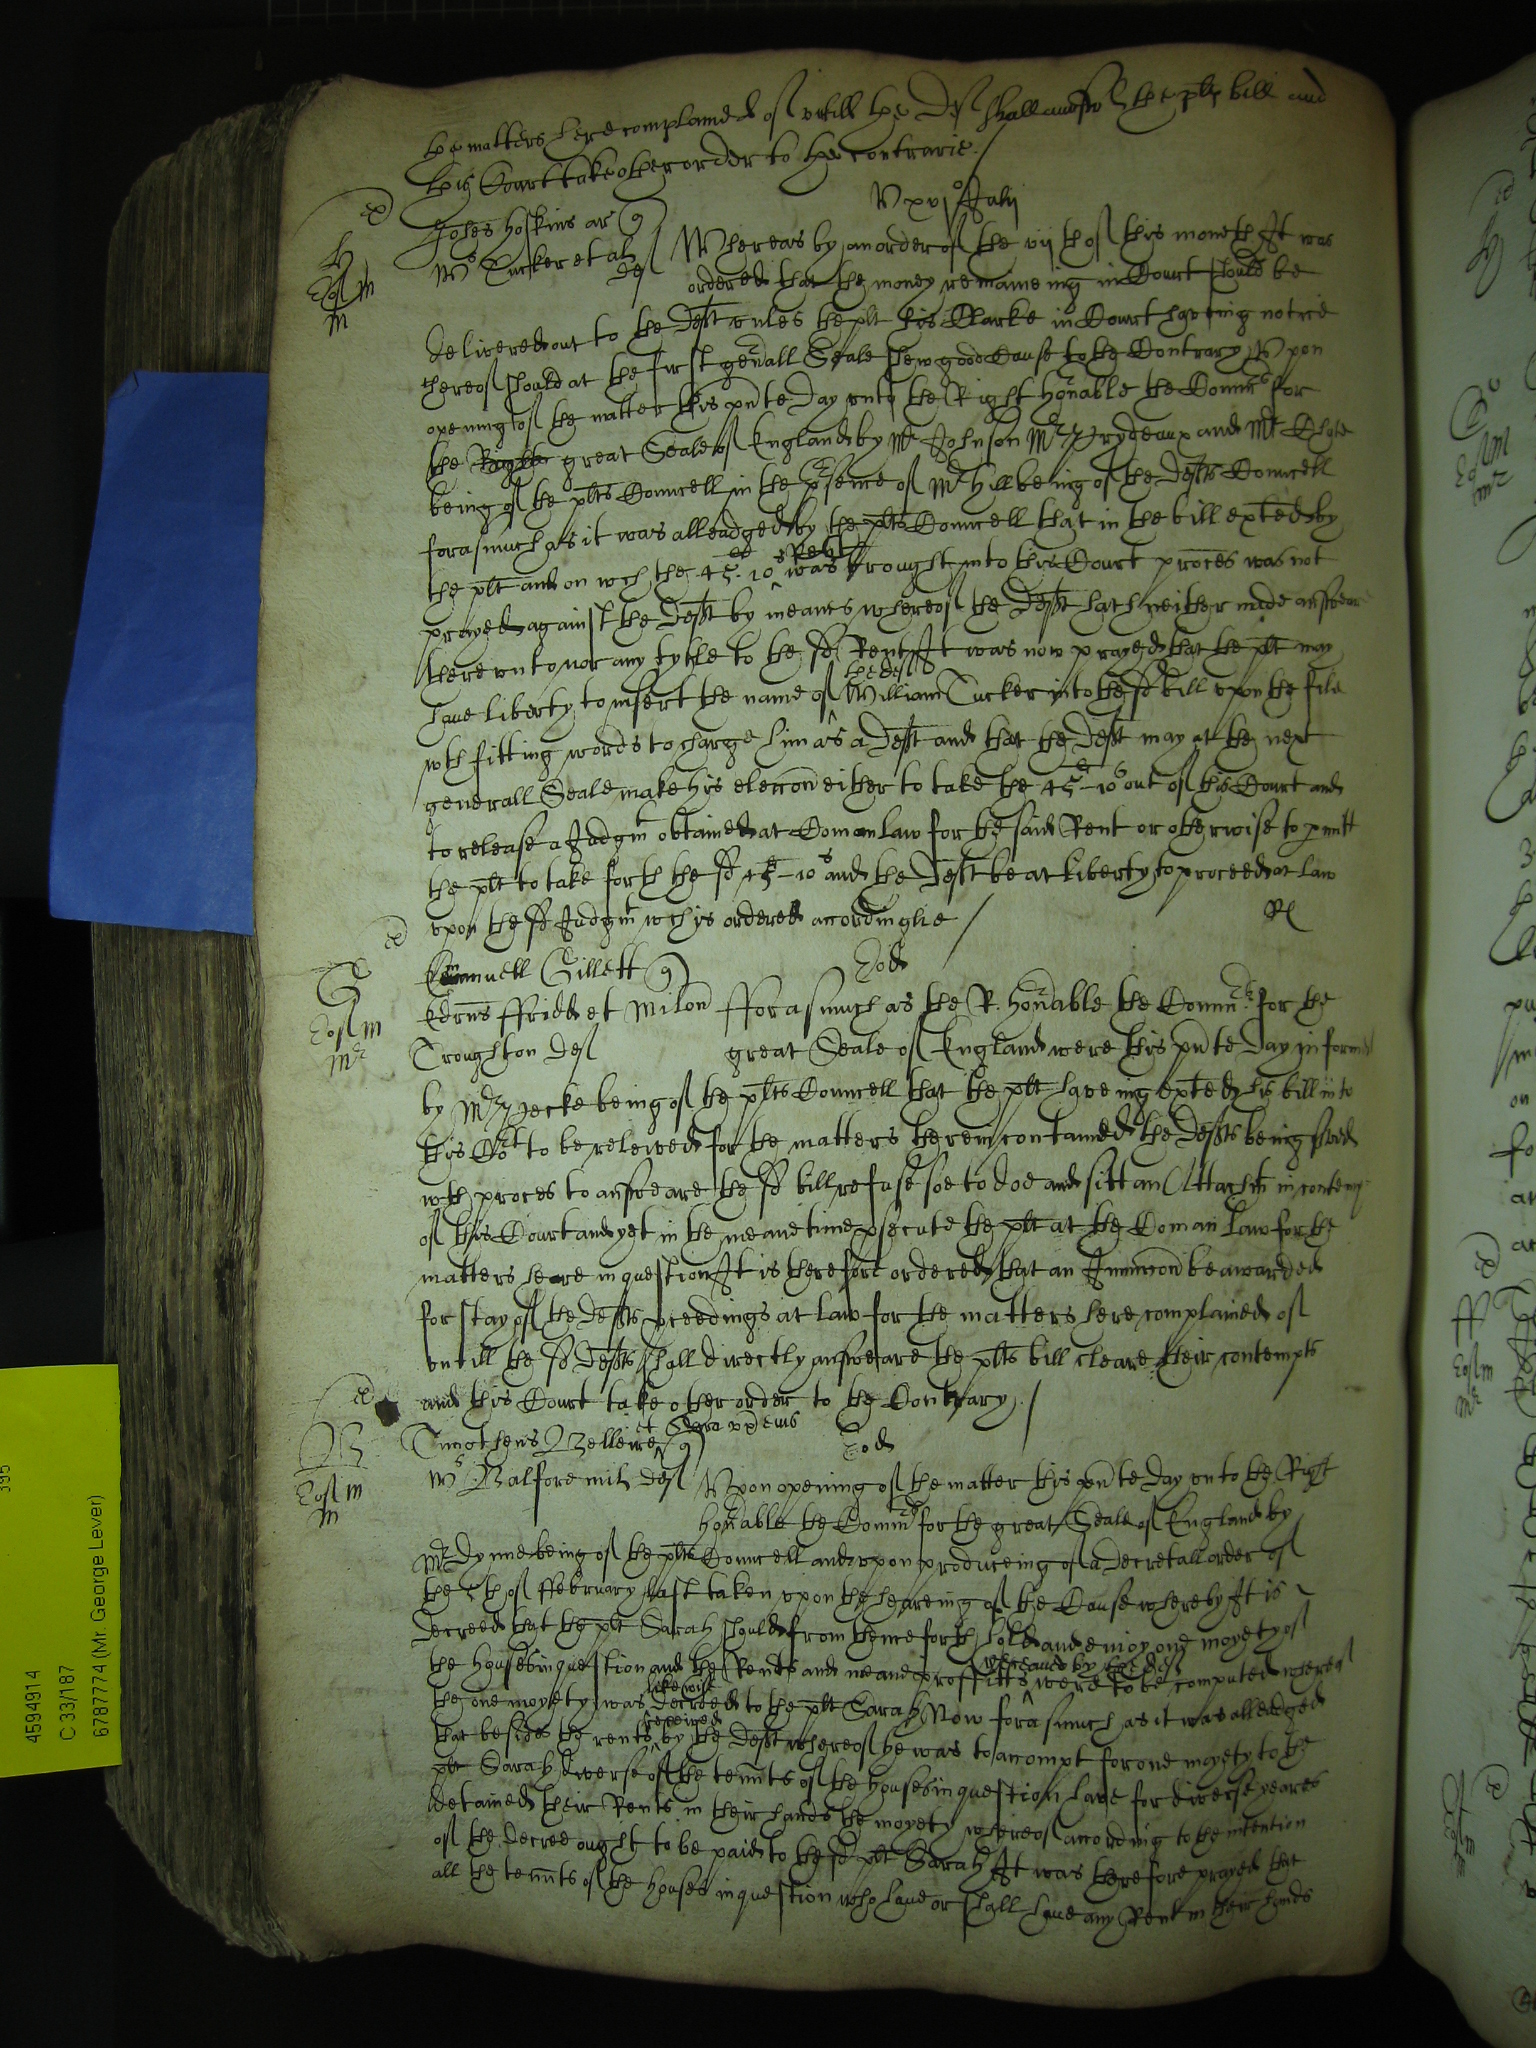 the matters here complained of untill the Def shall answere the plts bill and
this Court take other order to the contrarie /
V xvj° Julij
Johes Hoskins ar q
Ws Tucker et al def
Whereas by an order of the vij th of this moneth It was
ordered that the money remaineing in Court should be
delivered out to the Deft unles the plt his Clarke in Court haveing notice
thereof should at the first genall Seale shew good Cause to the Contrary Upon
opening of the matter this pnte day unto the Right honable the Commrs for
the great Seale of England by Mr Johnson Mr Prydeaux and Mr Chute
being of the plts Councell in the psence of Mr Hill being of the Defts Councell
forasmuch as it was alleadged by the plts Councell that in the bill exted by
the plt and on wch the 45li 10s Rent was brought into this Court proces was not
prayed against the Deft by meanes whereof the Deft hath neither made answeare
thereunto nor any tytle to the sd Rent It was now prayed that the plt may
have liberty to insert the name of the def William Tucker into the sd bill upon the file
wth fitting words to charge him as a Deft and that the Deft may at the next
generall Seale make his eleccon either to take the 45li-10s out of this Court and
to release a Judgmt obtained at Comon law for the said Rent or otherwise to pmitt
the plt to take forth the sd 45li-10s and the Deft be at liberty to proceed at law
upon the sd Judgmt wch is ordered accordinglie /
Rl
Emanuell Gillett q
Eod
Edrus ffridd et Milon
Troughton def
fforasmuch as the R. honable the Commrs for the
great Seale of England were this pnte day informed
by Mr Pecke being of the plts Councell that the plt haveing exted his bill into
this Cort to be releived for the matters therein contained the Defts being served
wth proces to answeare the sd bill refuse soe to doe and sitt an Attachmt in contempt
of this Court and yet in the meane time psecute the plt at the Coman law for the
matters here in question It is therefore ordered that an Iniunccon be awarded
for stay of the Defts pceedings at law for the matters here complained of
untill the sd Defts shall directly answeare the plts bill cleare their contempts
and this Court take other order to the Contrary /
Timotheus et Sara ux eius q
Eod
Ws Balfore mil def
Upon opening of the matter this pnte day unto the Right
honable the Commrs for the great Seale of England by
Mr being of the plts Councell and upon produceing of a decretall order of
the 5th of ffebruary last taken upon the heareing of the Cause whereby It is
decreed that the plt Sarah should from thenceforth hold and enjoy one moyety of
the houses in question and the Rents and meane proffitts received by the def were to be computed whereof
the one moyety was likewise decreed to the plt Sarah Now forasmuch as it was alleadged
that besides the rents received by the Deft whereof he was to accompt for one moyety to the
plt Sarah diverse of the tennts of the houses in question have for diverse yeares
detained their Rents in their hands the moyety whereof according to the intention
of the decree ought to be paid to the sd plt Sarah It was therefore prayed that
all the tennts of the houses in question who have or shall have any Rent in their hands
4594914
C 33/187
6787774 (Mr. George Lever)
395